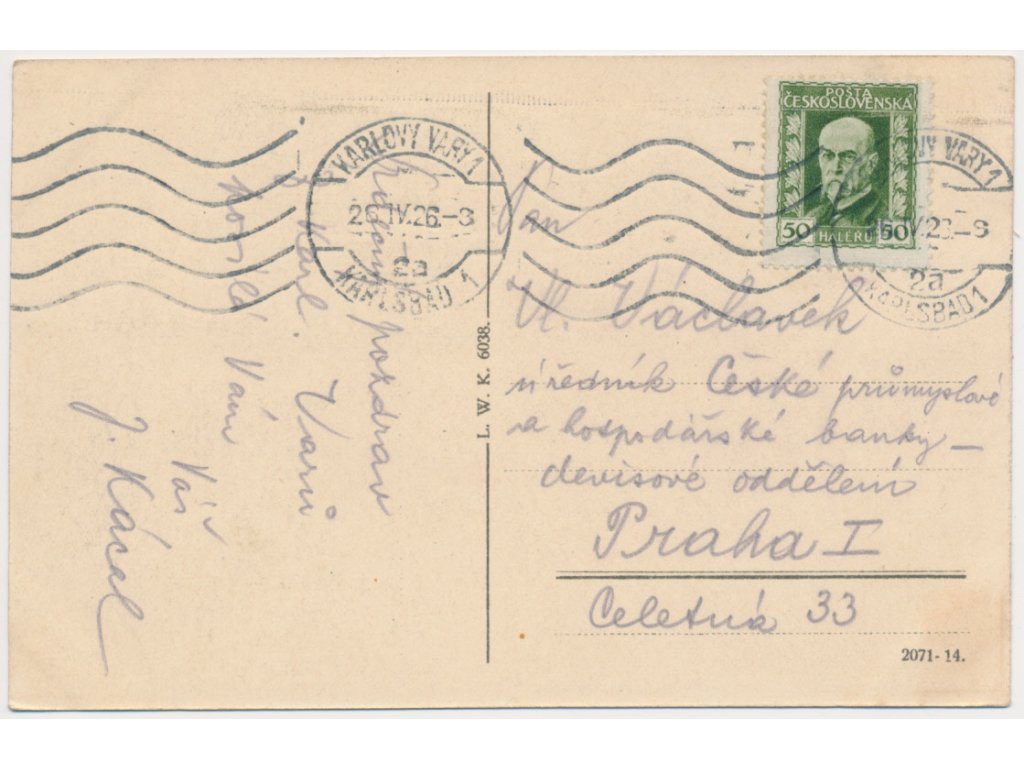 Srdečný pozdrav
z Karl. Varů
Vám
Váš
J. Kácal
KARLOVY VARY 1
26.IV.26.-8
2a
KARLSBAD 1
L. W. K. 6038.
POŠTA
ČESKOSLOVENSKÁ
50 HALÉŘŮ 50
KARLOVY VARY 1
IV.26.-8
2a
KARLSBAD 1
Pan
Vl. Václavek
úředník České průmyslové
a hospodářské banky –
devisové oddělení
Praha I
Celetná 33
2071-14.